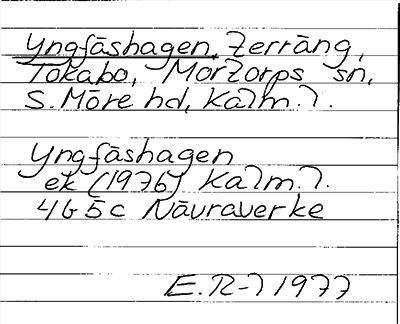 Yngfåshagen, Terräng,
Tokabo, Mortorps sn,
S. Möre hd, Kalm. l.
Yngfåshagen
ek (1976) Kalm. l.
4G5c Nävraverke
E. R-l 1977